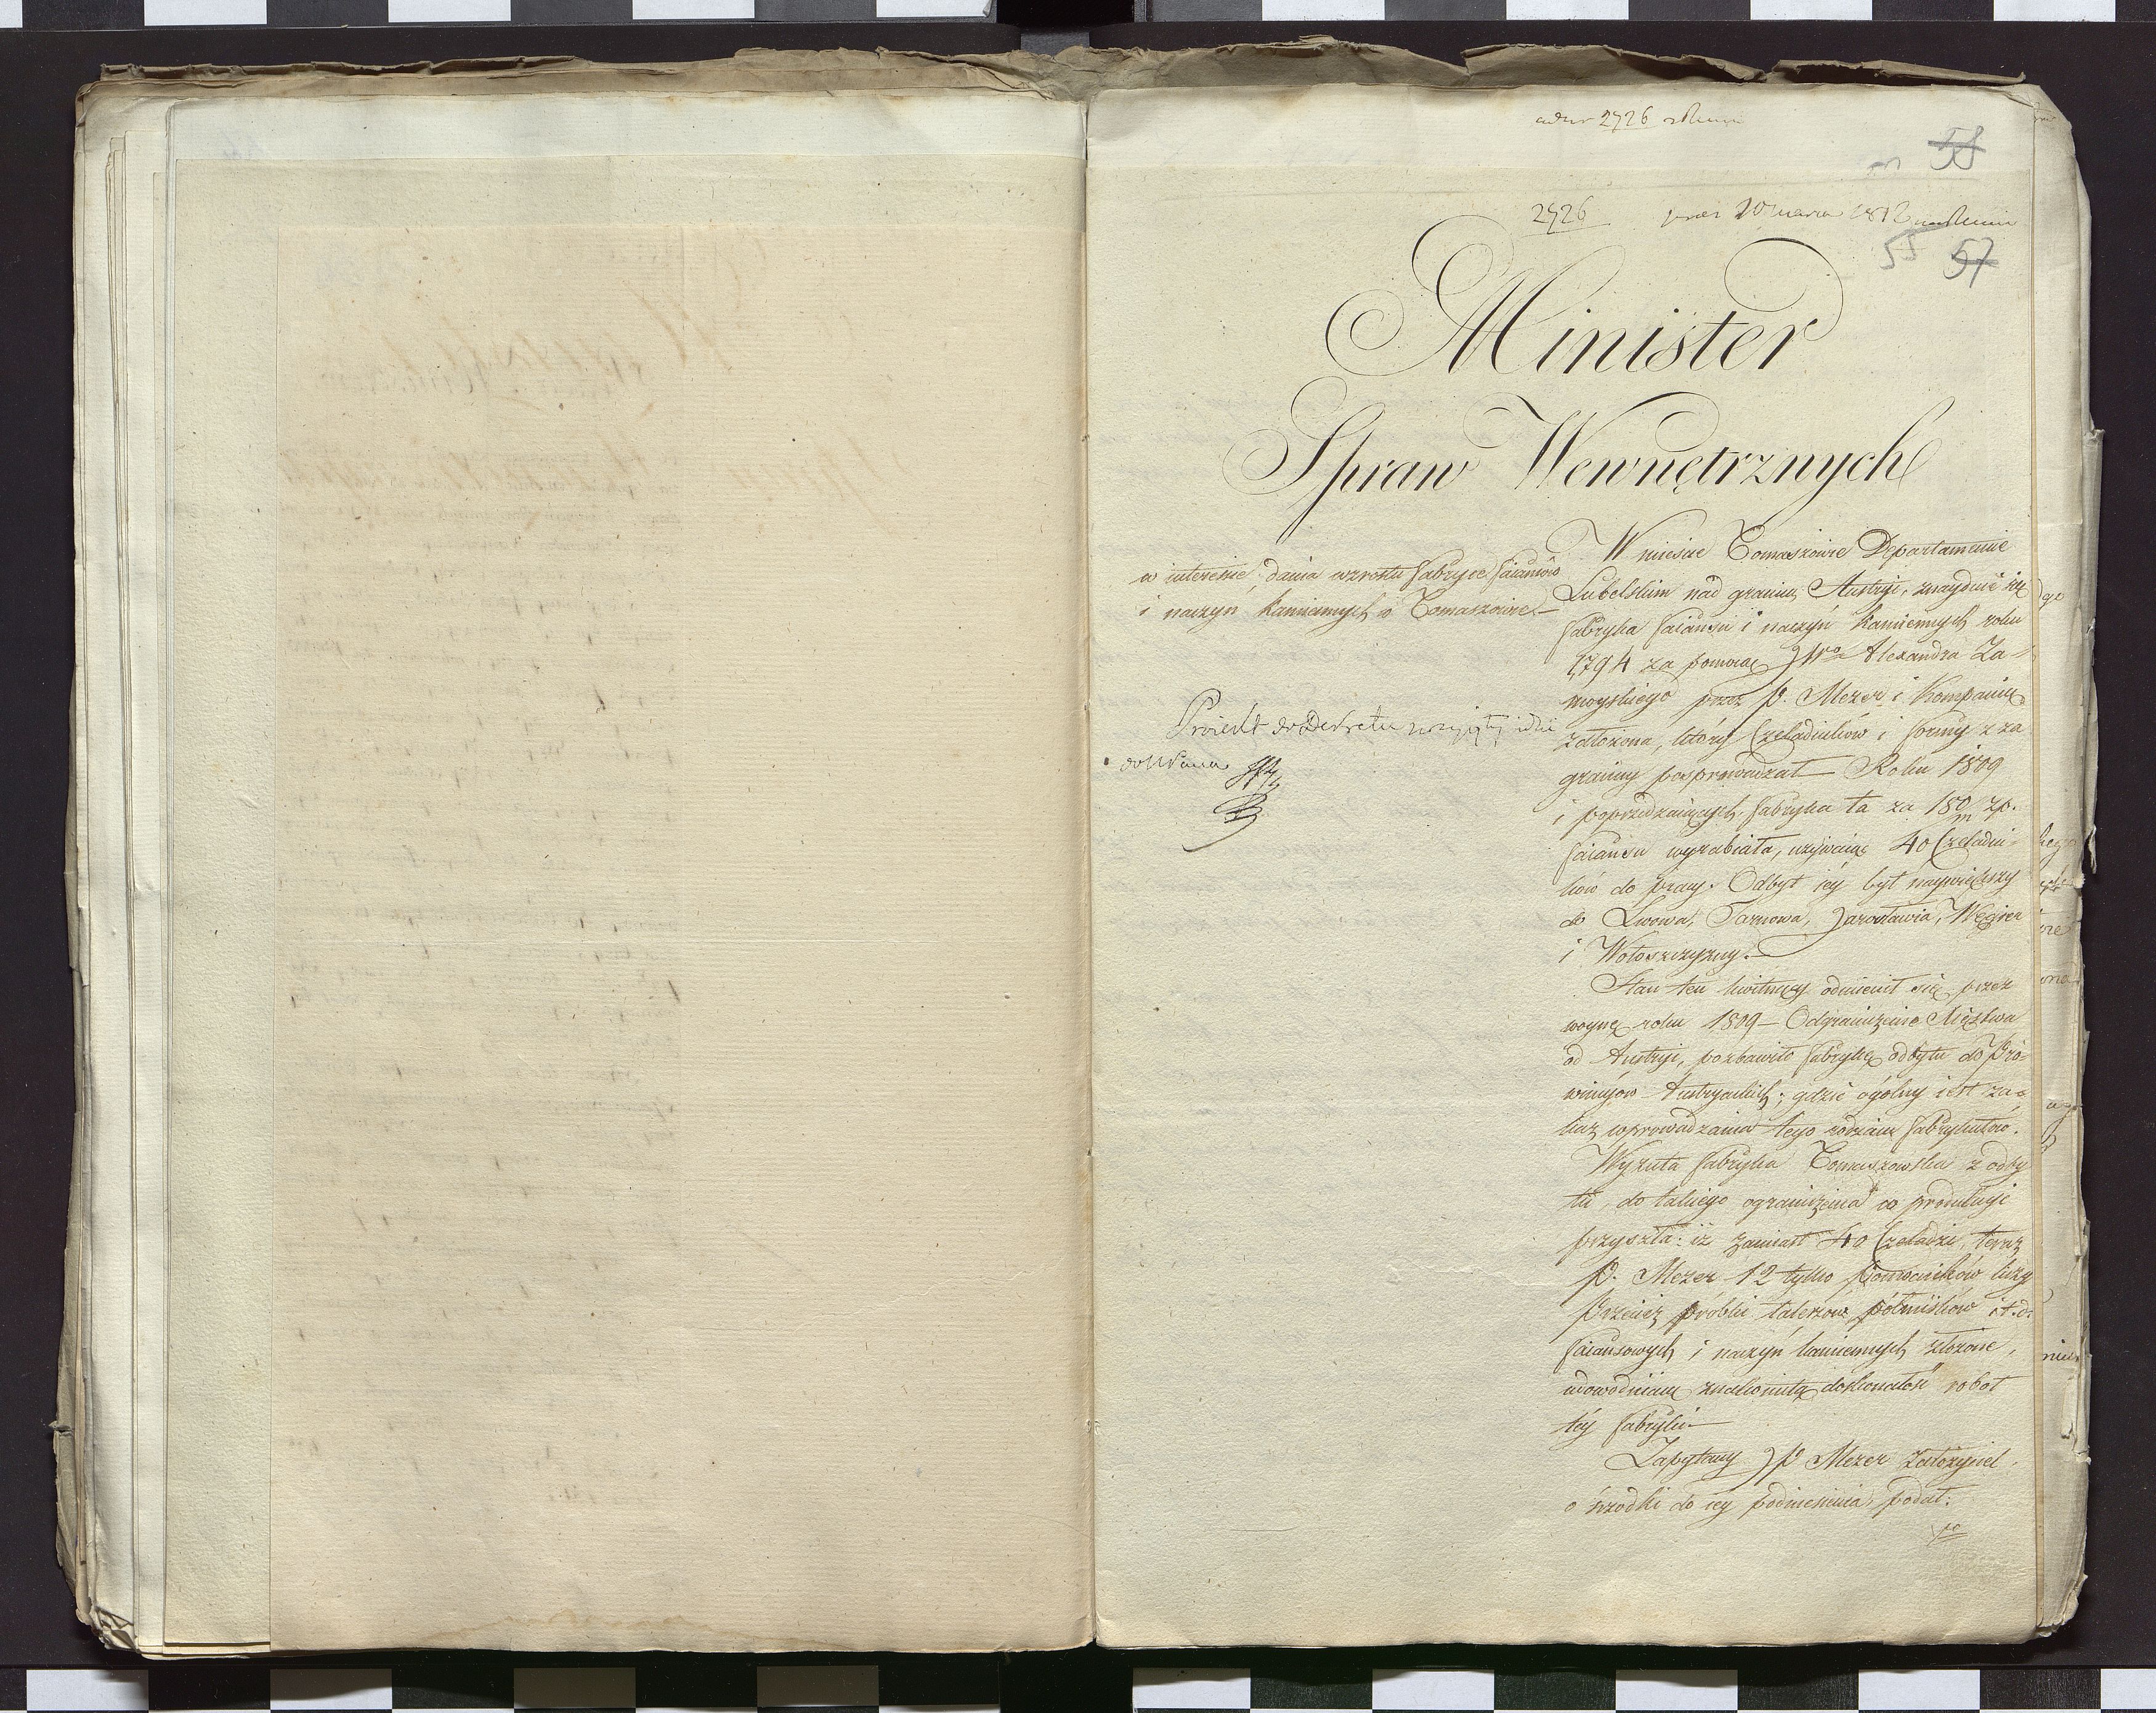 2726
58
2726 20 marca 1812
55 57
Minister
Spraw Wewnętrznych
w interesie dania wzrostu fabryce faiansów
i naczyń kamiennych w Tomaszowie.—
Proiekt do Dekretu przyięty idzie
do Króla
W mieście Tomaszowie Departamencie
Lubelskim nad granicą Austryi, znayduie się
fabryka faiansu i naczyń kamiennych roku
1794 za pomocą JW° Alexandra Za=
moyskiego przez P. Mezer i Kompanię
założona, który Czeladników i formy z za
granicy posprowadzał — Roku 1809
i poprzedzaiących, fabryka ta za 150/m zp.
faiansu wyrabiała, używaiąc 40 Czeladni=
ków do pracy. Odbyt iey był naywiększy
do Lwowa, Tarnowa, Jarosławia, Węgier
i Wołoszczyzny.—
Stan ten kwitnący odmienił się przez
woynę roku 1809 — Odgraniczenie Xięstwa
od Austryi, pozbawiło fabrykę odbytu do Pro=
wincyow Austryackich; gdzie ogólny iest za=
kaz wprowadzania tego rodzaiu fabrykatów.
Wyzuta fabryka Tomaszowska z odby
tu, do takiego ograniczenia w produkcyi
przyszła: iż zamiast 40 Czeladzi, teraz
P. Mezer 12 tylko Pomocników liczy
Przecież próbki talerzów, półmisków i t. d.
faiansowych i naczyń kamiennych złożone,
udowodniaią znakomitą doskonałość robot
tey fabryki—
Zapytany JP Mezer założyciel
o śrzodki do iey podniesienia, podał: